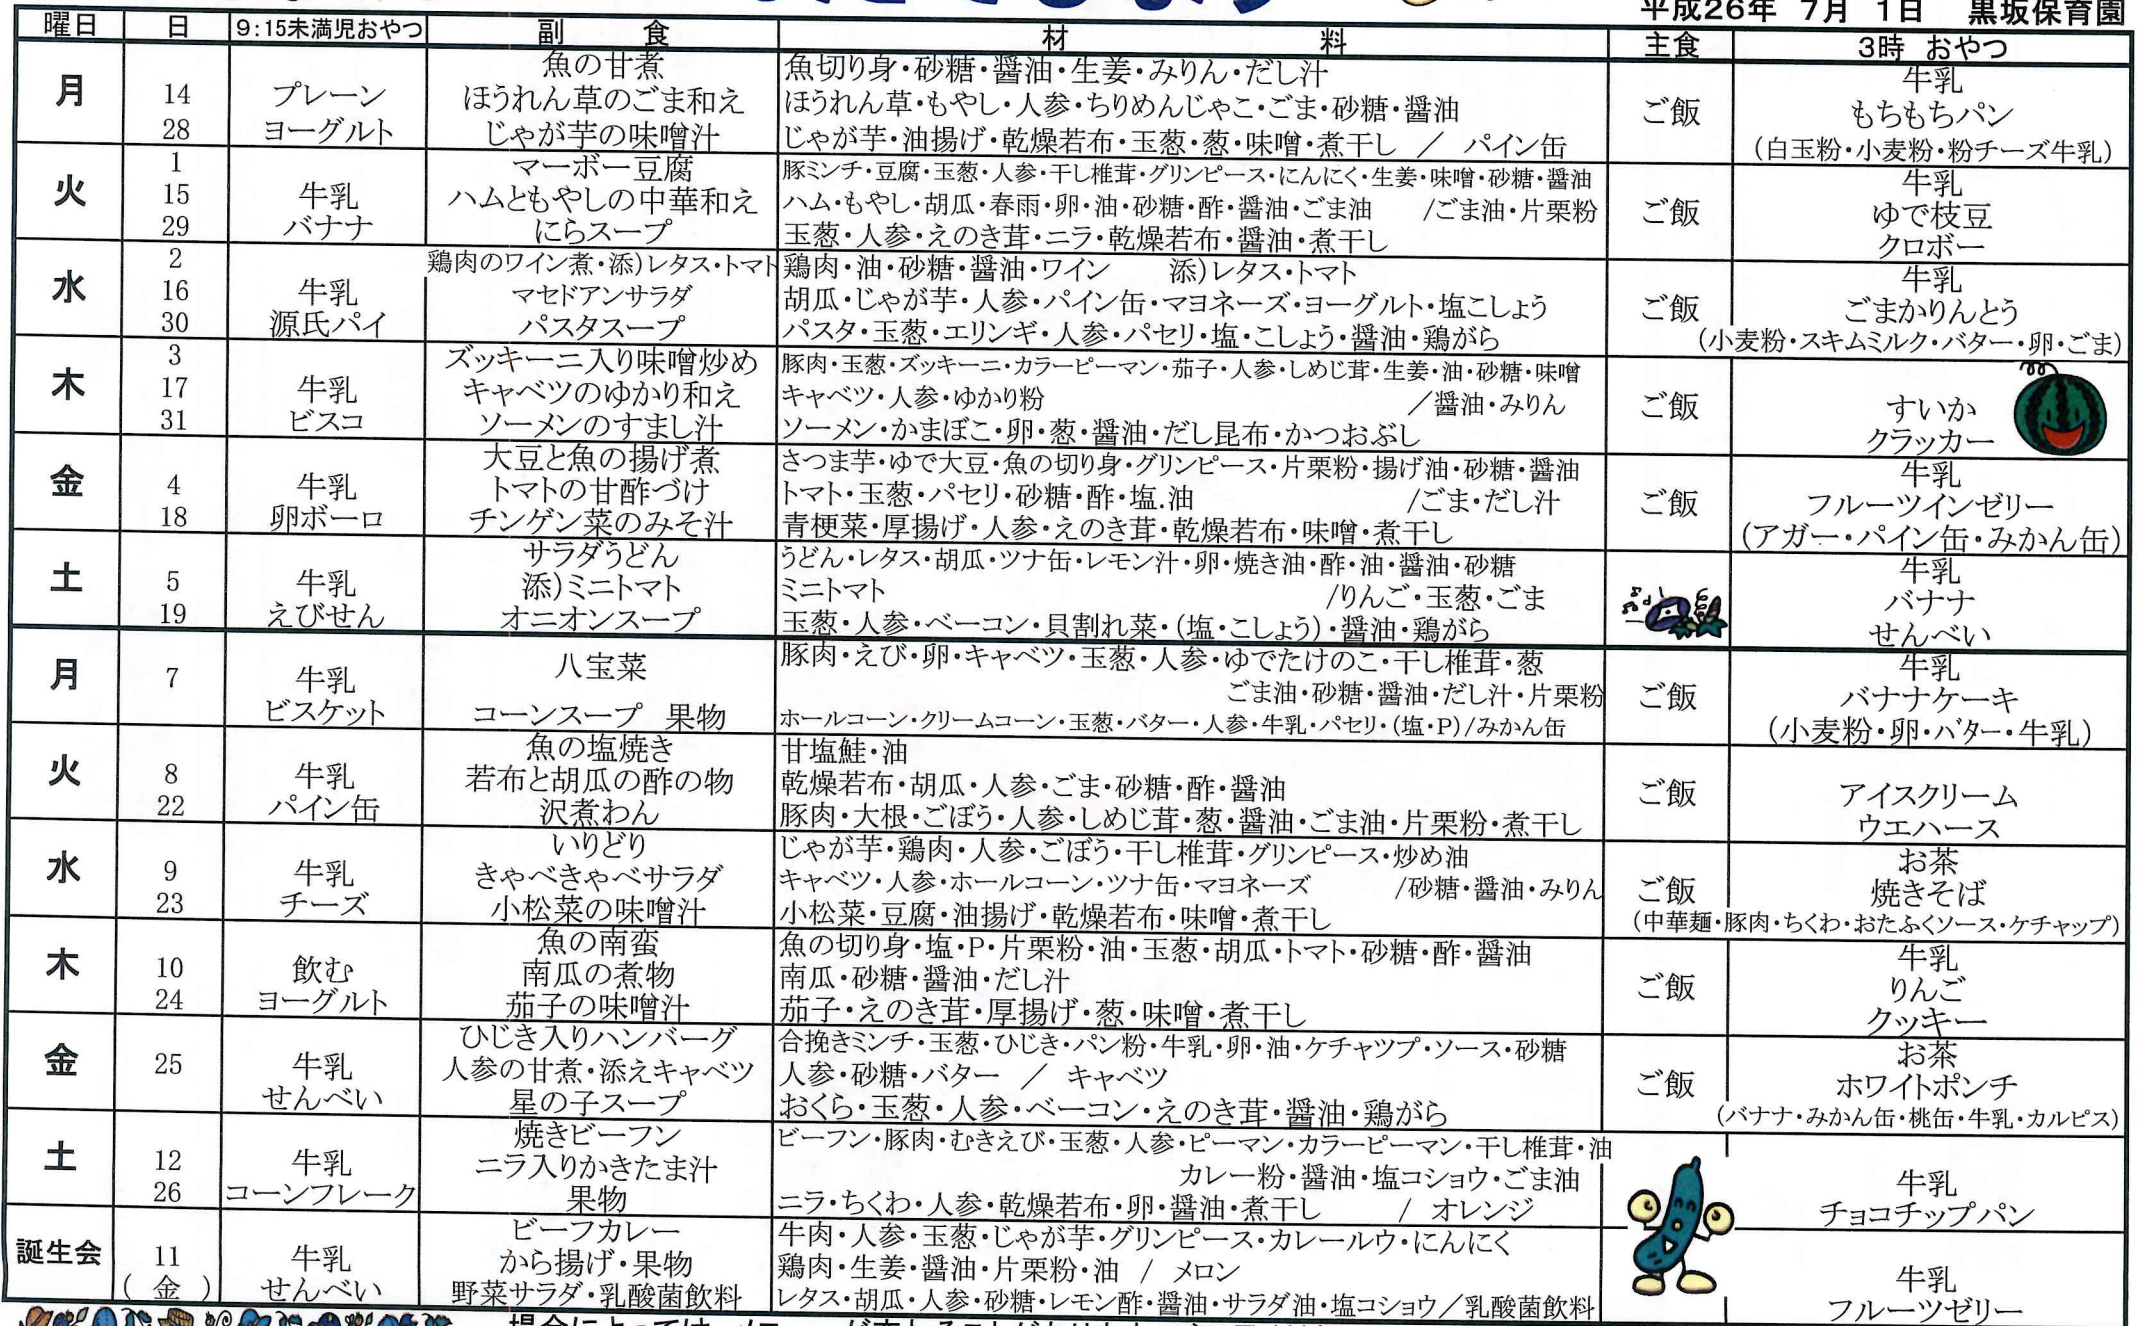 平成26年 7月 1日 黒坂保育園
曜日 日 9:15未満児おやつ 副 食 材 料 主食 3時 おやつ
月
14
28
プレーン
ヨーグルト
魚の甘煮
ほうれん草のごま和え
じゃが芋の味噌汁
魚切り身・砂糖・醤油・生姜・みりん・だし汁
ほうれん草・もやし・人参・ちりめんじゃこ・ごま・砂糖・醤油
じゃが芋・油揚げ・乾燥若布・玉葱・葱・味噌・煮干し / パイン缶
ご飯
牛乳
もちもちパン
(白玉粉・小麦粉・粉チーズ牛乳)
火
1
15
29
牛乳
バナナ
マーボー豆腐
ハムともやしの中華和え
にらスープ
豚ミンチ・豆腐・玉葱・人参・干し椎茸・グリンピース・にんにく・生姜・味噌・砂糖・醤油
ハム・もやし・胡瓜・春雨・卵・油・砂糖・酢・醤油・ごま油 /ごま油・片栗粉
玉葱・人参・えのき茸・ニラ・乾燥若布・醤油・煮干し
ご飯
牛乳
ゆで枝豆
クロボー
水
2
16
30
牛乳
源氏パイ
鶏肉のワイン煮・添)レタス・トマト
マセドアンサラダ
パスタスープ
鶏肉・油・砂糖・醤油・ワイン 添)レタス・トマト
胡瓜・じゃが芋・人参・パイン缶・マヨネーズ・ヨーグルト・塩こしょう
パスタ・玉葱・エリンギ・人参・パセリ・塩・こしょう・醤油・鶏がら
ご飯
牛乳
ごまかりんとう
(小麦粉・スキムミルク・バター・卵・ごま)
木
3
17
31
牛乳
ビスコ
ズッキーニ入り味噌炒め
キャベツのゆかり和え
ソーメンのすまし汁
豚肉・玉葱・ズッキーニ・カラーピーマン・茄子・人参・しめじ茸・生姜・油・砂糖・味噌
キャベツ・人参・ゆかり粉 /醤油・みりん
ソーメン・かまぼこ・卵・葱・醤油・だし昆布・かつおぶし
ご飯
すいか
クラッカー
金
4
18
牛乳
卵ボーロ
大豆と魚の揚げ煮
トマトの甘酢づけ
チンゲン菜のみそ汁
さつま芋・ゆで大豆・魚の切り身・グリンピース・片栗粉・揚げ油・砂糖・醤油
トマト・玉葱・パセリ・砂糖・酢・塩.油 /ごま・だし汁
青梗菜・厚揚げ・人参・えのき茸・乾燥若布・味噌・煮干し
ご飯
牛乳
フルーツインゼリー
(アガー・パイン缶・みかん缶)
土
5
19
牛乳
えびせん
サラダうどん
添)ミニトマト
オニオンスープ
うどん・レタス・胡瓜・ツナ缶・レモン汁・卵・焼き油・酢・油・醤油・砂糖
ミニトマト /りんご・玉葱・ごま
玉葱・人参・ベーコン・貝割れ菜・(塩・こしょう)・醤油・鶏がら
牛乳
バナナ
せんべい
月
7
牛乳
ビスケット
八宝菜
コーンスープ 果物
豚肉・えび・卵・キャベツ・玉葱・人参・ゆでたけのこ・干し椎茸・葱
ごま油・砂糖・醤油・だし汁・片栗粉
ホールコーン・クリームコーン・玉葱・バター・人参・牛乳・パセリ・(塩・P)/みかん缶
ご飯
牛乳
バナナケーキ
(小麦粉・卵・バター・牛乳)
火
8
22
牛乳
パイン缶
魚の塩焼き
若布と胡瓜の酢の物
沢煮わん
甘塩鮭・油
乾燥若布・胡瓜・人参・ごま・砂糖・酢・醤油
豚肉・大根・ごぼう・人参・しめじ茸・葱・醤油・ごま油・片栗粉・煮干し
ご飯
アイスクリーム
ウエハース
水
9
23
牛乳
チーズ
いりどり
きゃべきゃべサラダ
小松菜の味噌汁
じゃが芋・鶏肉・人参・ごぼう・干し椎茸・グリンピース・炒め油
キャベツ・人参・ホールコーン・ツナ缶・マヨネーズ /砂糖・醤油・みりん
小松菜・豆腐・油揚げ・乾燥若布・味噌・煮干し
ご飯
お茶
焼きそば
(中華麺・豚肉・ちくわ・おたふくソース・ケチャップ)
木
10
24
飲む
ヨーグルト
魚の南蛮
南瓜の煮物
茄子の味噌汁
魚の切り身・塩・P・片栗粉・油・玉葱・胡瓜・トマト・砂糖・酢・醤油
南瓜・砂糖・醤油・だし汁
茄子・えのき茸・厚揚げ・葱・味噌・煮干し
ご飯
牛乳
りんご
クッキー
金
25
牛乳
せんべい
ひじき入りハンバーグ
人参の甘煮・添えキャベツ
星の子スープ
合挽きミンチ・玉葱・ひじき・パン粉・牛乳・卵・油・ケチャツプ・ソース・砂糖
人参・砂糖・バター / キャベツ
おくら・玉葱・人参・ベーコン・えのき茸・醤油・鶏がら
ご飯
お茶
ホワイトポンチ
(バナナ・みかん缶・桃缶・牛乳・カルピス)
土
12
26
牛乳
コーンフレーク
焼きビーフン
ニラ入りかきたま汁
果物
ビーフン・豚肉・むきえび・玉葱・人参・ピーマン・カラーピーマン・干し椎茸・油
カレー粉・醤油・塩コショウ・ごま油
ニラ・ちくわ・人参・乾燥若布・卵・醤油・煮干し / オレンジ
牛乳
チョコチップパン
誕生会
11
(金)
牛乳
せんべい
ビーフカレー
から揚げ・果物
野菜サラダ・乳酸菌飲料
牛肉・人参・玉葱・じゃが芋・グリンピース・カレールウ・にんにく
鶏肉・生姜・醤油・片栗粉・油 / メロン
レタス・胡瓜・人参・砂糖・レモン酢・醤油・サラダ油・塩コショウ/乳酸菌飲料
牛乳
フルーツゼリー